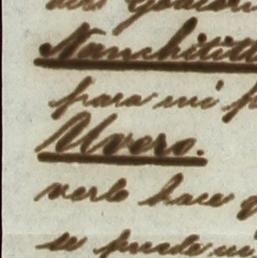 Nanchititl
para mi p
Uvero.
verlo hace q
se puede